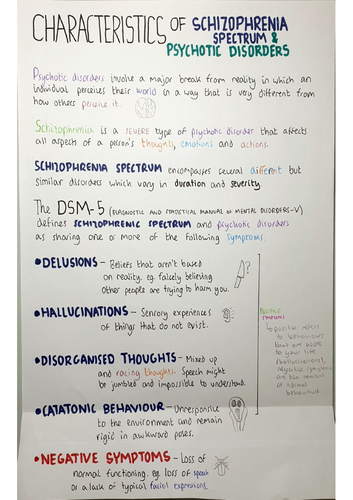 CHARACTERISTICS OF SCHIZOPHRENIA
SPECTRUM &
PSYCHOTIC DISORDERS
Psychotic disorders involve a major break from reality in which an
individual perceives their world in a way that is very different from
how others perceive it.
Schizophrenia is a SEVERE type of psychotic disorder that affects
all aspects of a person's thoughts, emotions and actions.
SCHIZOPHRENIA SPECTRUM encompasses several different but
similar disorders which vary in duration and severity.
The DSM-5 (DIAGNOSTIC AND STATISTICAL MANUAL OF MENTAL DISORDERS-V)
defines SCHIZOPHRENIC SPECTRUM and psychotic disorders
as sharing one or more of the following symptoms.
•DELUSIONS - Beliefs that aren't based
on reality. eg. falsely believing
other people are trying to harm you.
•HALLUCINATIONS - Sensory experiences
of things that do not exist.
POSITIVE
SYMPTOMS
→positive refers
to behaviours
that are added
to your life
(hallucinations),
negative symptoms
are the removal
of normal
behaviour
•DISORGANISED THOUGHTS - Mixed up
and racing thoughts. Speech might
be jumbled and impossible to understand.
•CATATONIC BEHAVIOUR - Unresponsive
to the environment and remain
rigid in awkward poses.
•NEGATIVE SYMPTOMS - Loss of
normal functioning. eg loss of speech
or a lack of typical facial expressions.